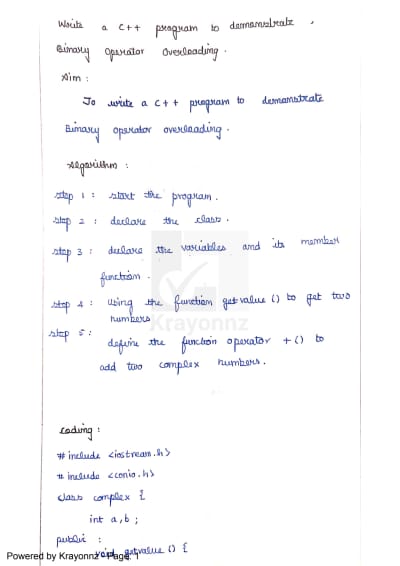 Write a C++ program to demamstrate
Binary Operator Overloading.
Aim :
To write a C++ program to demamstrate
Binary operator overloading.
Algorithm :
step 1 : start the program.
step 2 : declare the class.
step 3 : declare the variables and its member
function.
step 4 : using the function getvalue () to get two
numbers
step 5 :
define the function operator +() to
add two complex numbers.
Krayonnz
Coding :
# include <iostream.h>
# include <conio.h>
class complex {
int a,b ;
public :
void getvalue () {
Powered by Krayonnz - Page: 1